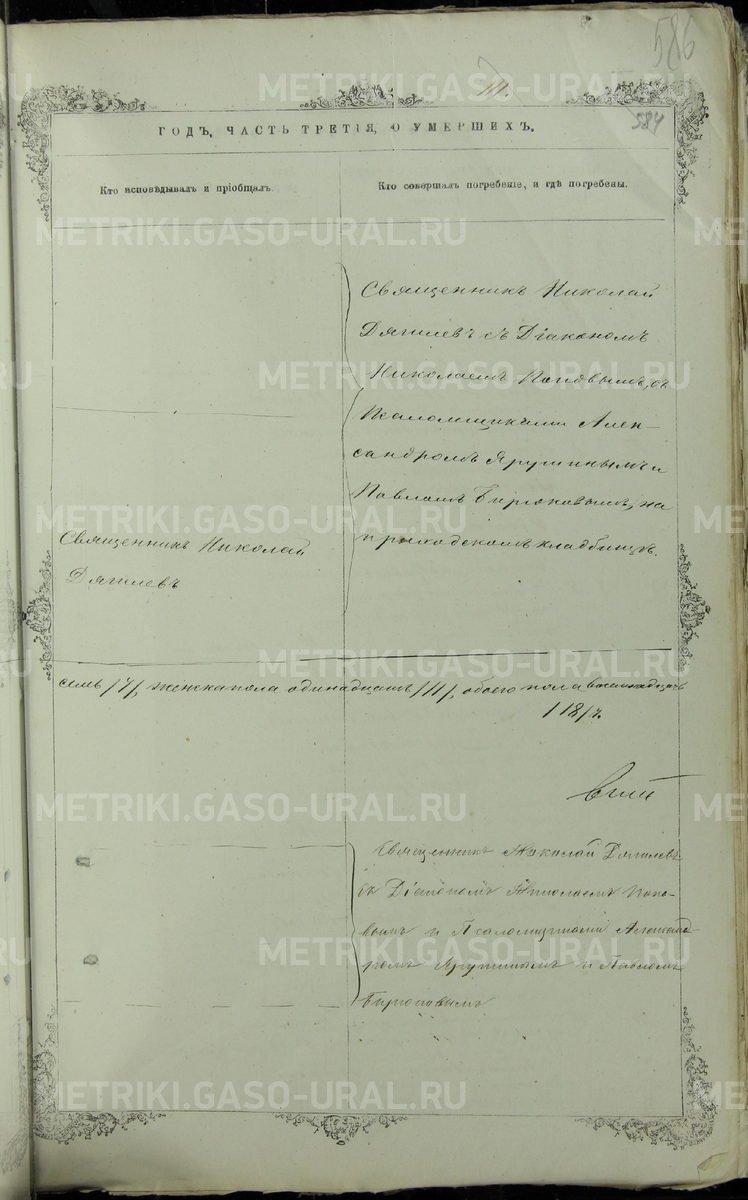 586
III.
584
ГОДЪ, ЧАСТЬ ТРЕТІЯ, О УМЕРШИХЪ.
Кто исповѣдывалъ и пріобщалъ.
Кто совершалъ погребеніе, и гдѣ погребены.
Священникъ Николай
Дягилевъ съ Діакономъ
Николаемъ Поповымъ, съ
Псаломщиками Алек-
сандромъ Ярушинымъ и
Павломъ Бирюковымъ, на
приходскомъ кладбищѣ.
Священникъ Николай
Дягилевъ
семь /7/, женска пола одинадцать /11/, обоего пола восемнадцать
/18/ч.
Священникъ Николай Дягилевъ
съ Діакономъ Николаемъ Попо-
вымъ и Псаломщиками Александ-
ромъ Ярушинымъ и Павломъ
Бирюковымъ
METRIKI.GASO-URAL.RU